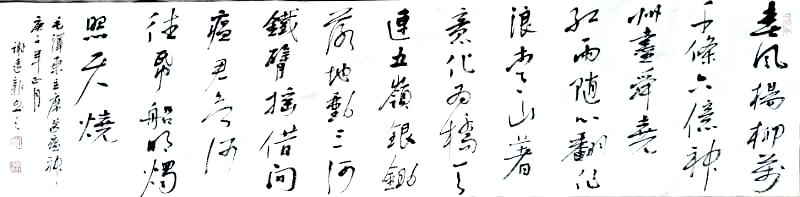 春风楊柳萬
千條六億神
州盡舜堯
红雨随心翻作
浪青山著
意化为橋天
連五嶺銀鋤
落地動三河
鐵臂摇借问
瘟君欲何
往帋船明燭
照天燒
毛澤東主席送瘟神
庚子年正月